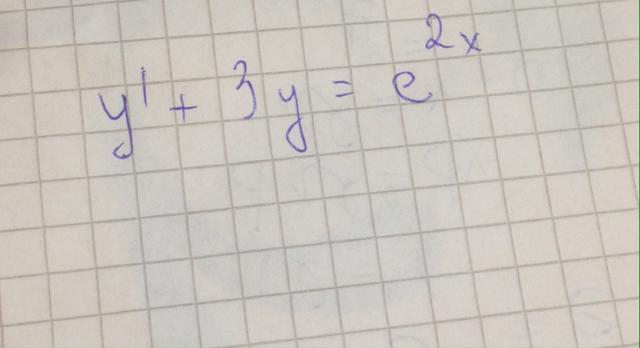 y' + 3y = e^{2x}